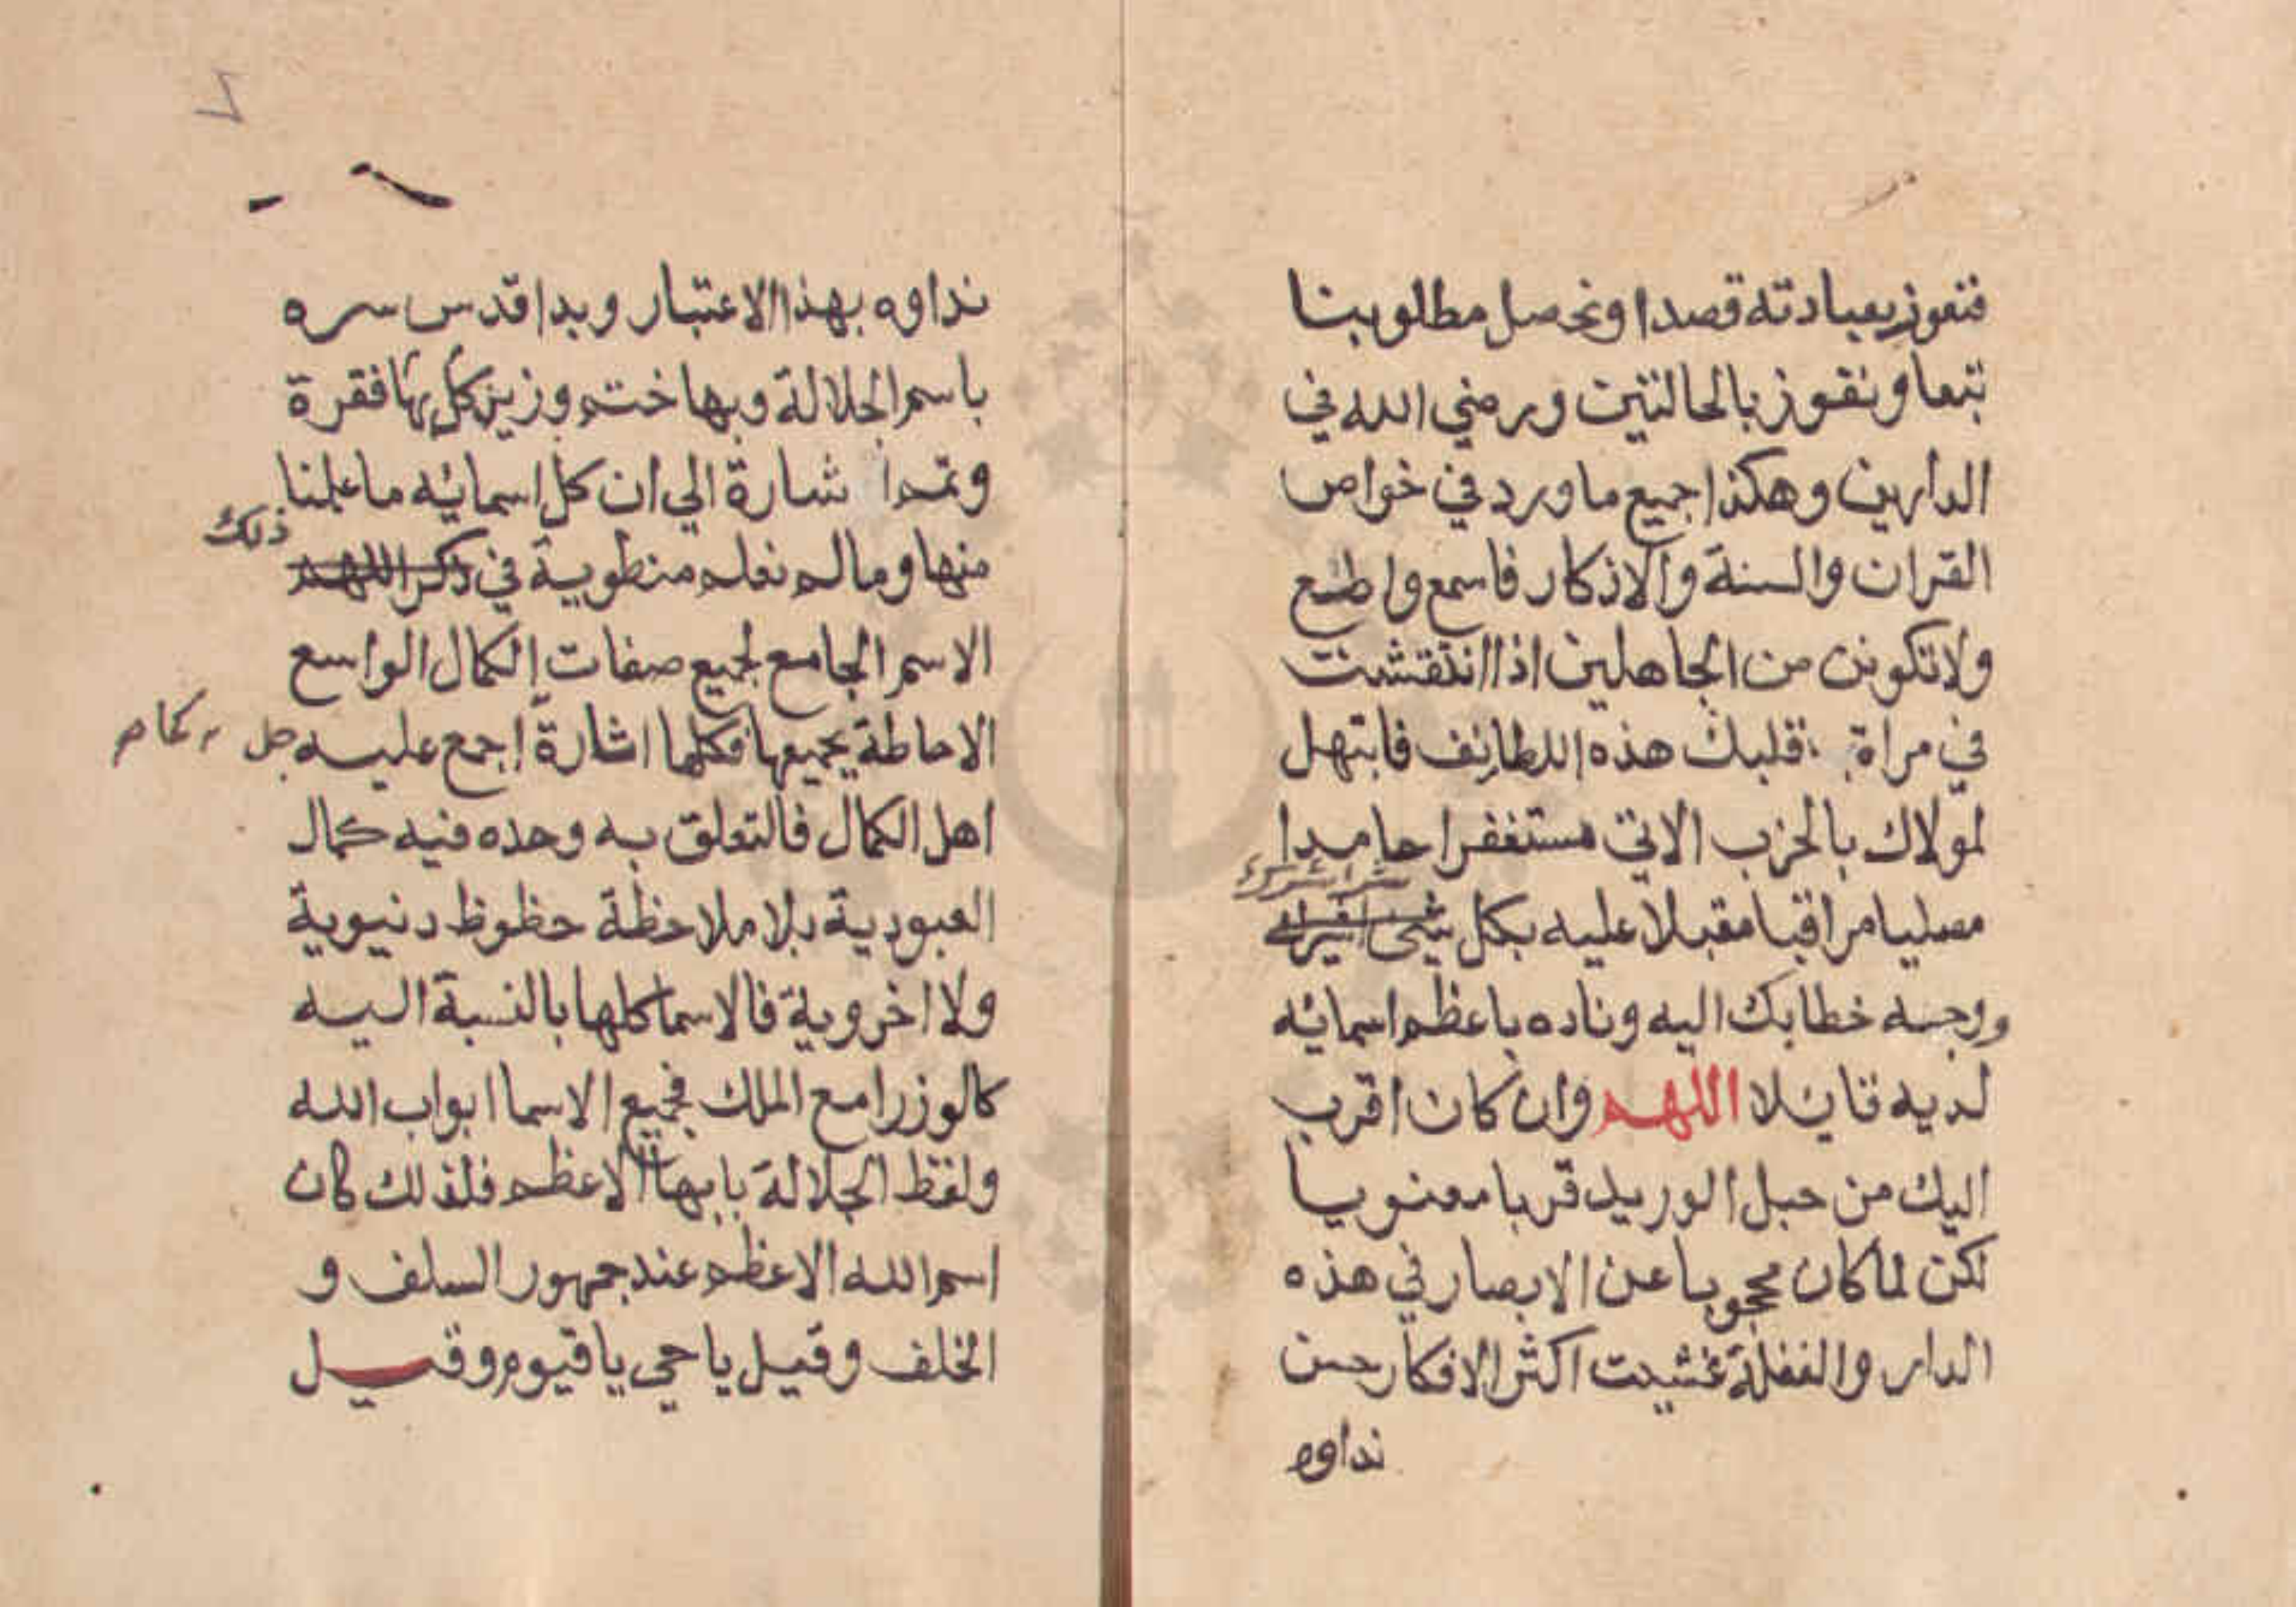 فنفوز بعبادته قصدا ونحصل مطلوبنا
تبعا ونفوز بالحالتين ورضي الله في
الدارين وهكذا جميع ما ورد في خواص
القران والسنة والاذكار فاسمع واطع
ولا تكونن من الجاهلين اذا انتقشت
في مراة قلبك هذه اللطائف فابتهل
لمولاك بالحزب الاتي مستغفرا حامدا
مصليا مراقبا مقبلا عليه بكل
ووجه خطابك اليه وناده باعظم اسمائه
لديه قايلا اللهم وان كان اقرب
اليك من حبل الوريد قربا معنويا
لكن لما كان محجوبا عن الابصار في هذه
الدار والغفلة غشيت اكثر الافكار حسن
نداوه
٧
نداوه بهذا الاعتبار وبدا قدس سره
باسم الجلالة وبها ختم وزين كل بها فقرة
وتم اشارة الي ان كل اسمائه ما علمنا
منها وما لم نعلم منطوية في ذكر اللهم
ذلك
الاسم الجامع لجميع صفات الكمال الواسع
الاحاطة بجميعها فكلها اشارة اجمع عليه جل
اهل الكمال فالتعلق به وحده فيه كمال
العبودية بلا ملاحظة حظوظ دنيوية
ولا اخروية فالاسما كلها بالنسبة اليه
كالوزرا مع الملك فجميع الاسما ابواب الله
ولفظ الجلالة بابها الاعظم فلذلك كان
اسم الله الاعظم عند جمهور السلف و
الخلف وقيل يا حي يا قيوم وقيل